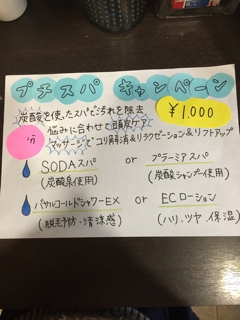 プチスパ キャンペーン
炭酸を使ったスパで汚れを除去
¥1,000
悩みに合わせて頭皮ケア
分 マッサージでコリ解消&リラクゼーション&リフトアップ
SODAスパ or プラーミアスパ
(炭酸泉使用) (炭酸シャンプー使用)
バサルコールドシャワーEX or ECローション
(脱毛予防・清涼感) (ハリ、ツヤ、保湿)